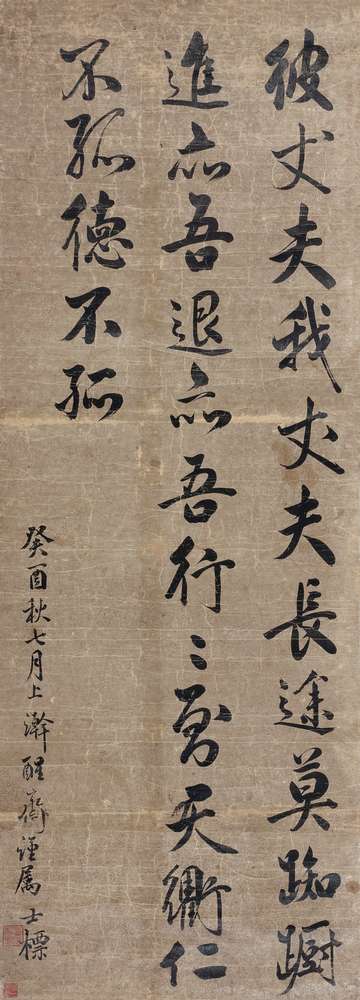 彼丈夫我丈夫長途莫踟躕
進亦吾退亦吾行〻天衢仁
不孤德不孤
癸酉秋七月上澣醒齋属士標